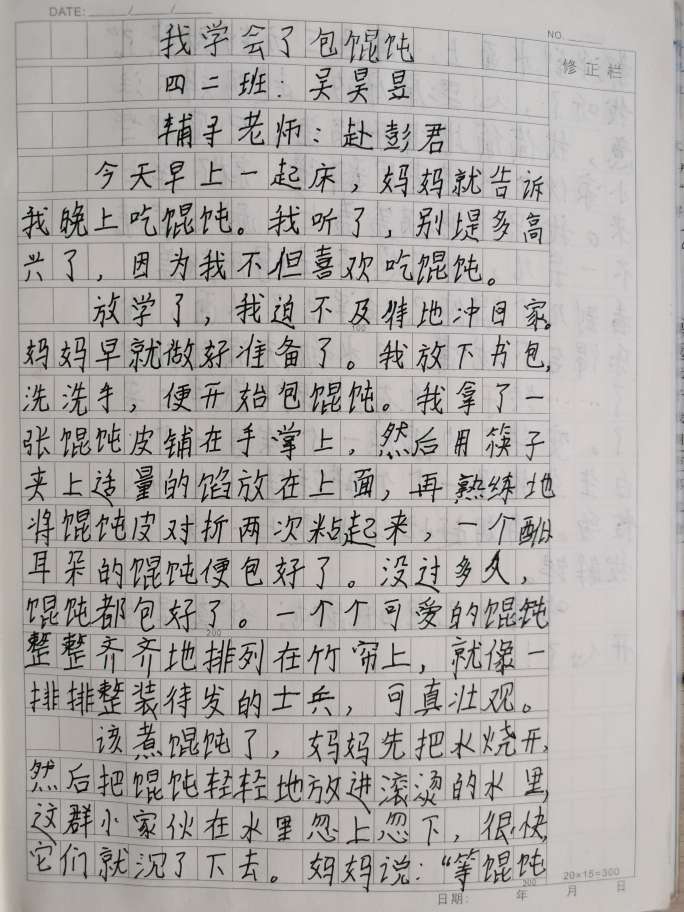 DATE: / /
NO.
修正栏
我学会了包馄饨
四二班：吴昊昱
辅导老师：赵彭君
今天早上一起床，妈妈就告诉
我晚上吃馄饨。我听了，别堤多高
兴了，因为我不但喜欢吃馄饨。
放学了，我迫不及待地冲回家。
妈妈早就做好准备了。我放下书包，
洗洗手，便开始包馄饨。我拿了一
张馄饨皮铺在手掌上，然后用筷子
夹上适量的馅放在上面，再熟练地
将馄饨皮对折两次粘起来，一个
耳朵的馄饨便包好了。没过多久，
馄饨都包好了。一个个可爱的馄饨
整整齐齐地排列在竹帘上，就像一
排排整装待发的士兵，可真壮观。
该煮馄饨了，妈妈先把水烧开，
然后把馄饨轻轻地放进滚烫的水里，
这群小家伙在水里忽上忽下，很快，
它们就沉了下去。妈妈说：“等馄饨
100
200
20×15=300
日期： 年 月 日